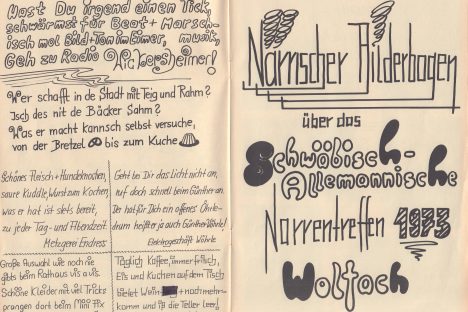 Hast Du irgend einen Tick,
schwärmst für Beat + Marsch-
isch mol Bild + Ton im Eimer, musik,
Geh zu Radio Wickersheimer!
Wer schafft in de Stadt mit Teig und Rahm?
Isch des nit de Bäcker Sahm?
Was er macht kannsch selbst versuche,
von der Bretzel bis zum Kuche
Schönes Fleisch + Hundeknochen,
saure Kuddle, Wurst zum Kochen,
was er hat is stets bereit,
zu jeder Tag- und Abendzeit.
Metzgerei Endress
Geht bei Dir das Licht nicht an,
ruf doch schnell beim Günther an.
Der hat für Dich ein offenes Ohr
drum helfter ja auch Günter Wöhrle!
Elektrogeschäft Wöhrle
Große Auswahl wie noch nie
gibts beim Rathaus vis a vis.
Schöne Kleider mit viel Tricks
prangen dort beim Mini Fix
Täglich Kaffee, immer frisch,
Eis und Kuchen auf dem Tisch
bietet + noch mehr-
kommt und iß die Teller leer!
Närrischer Bilderbogen
über das
Schwäbisch-
Allemannische
Narrentreffen 1973
Wolfach